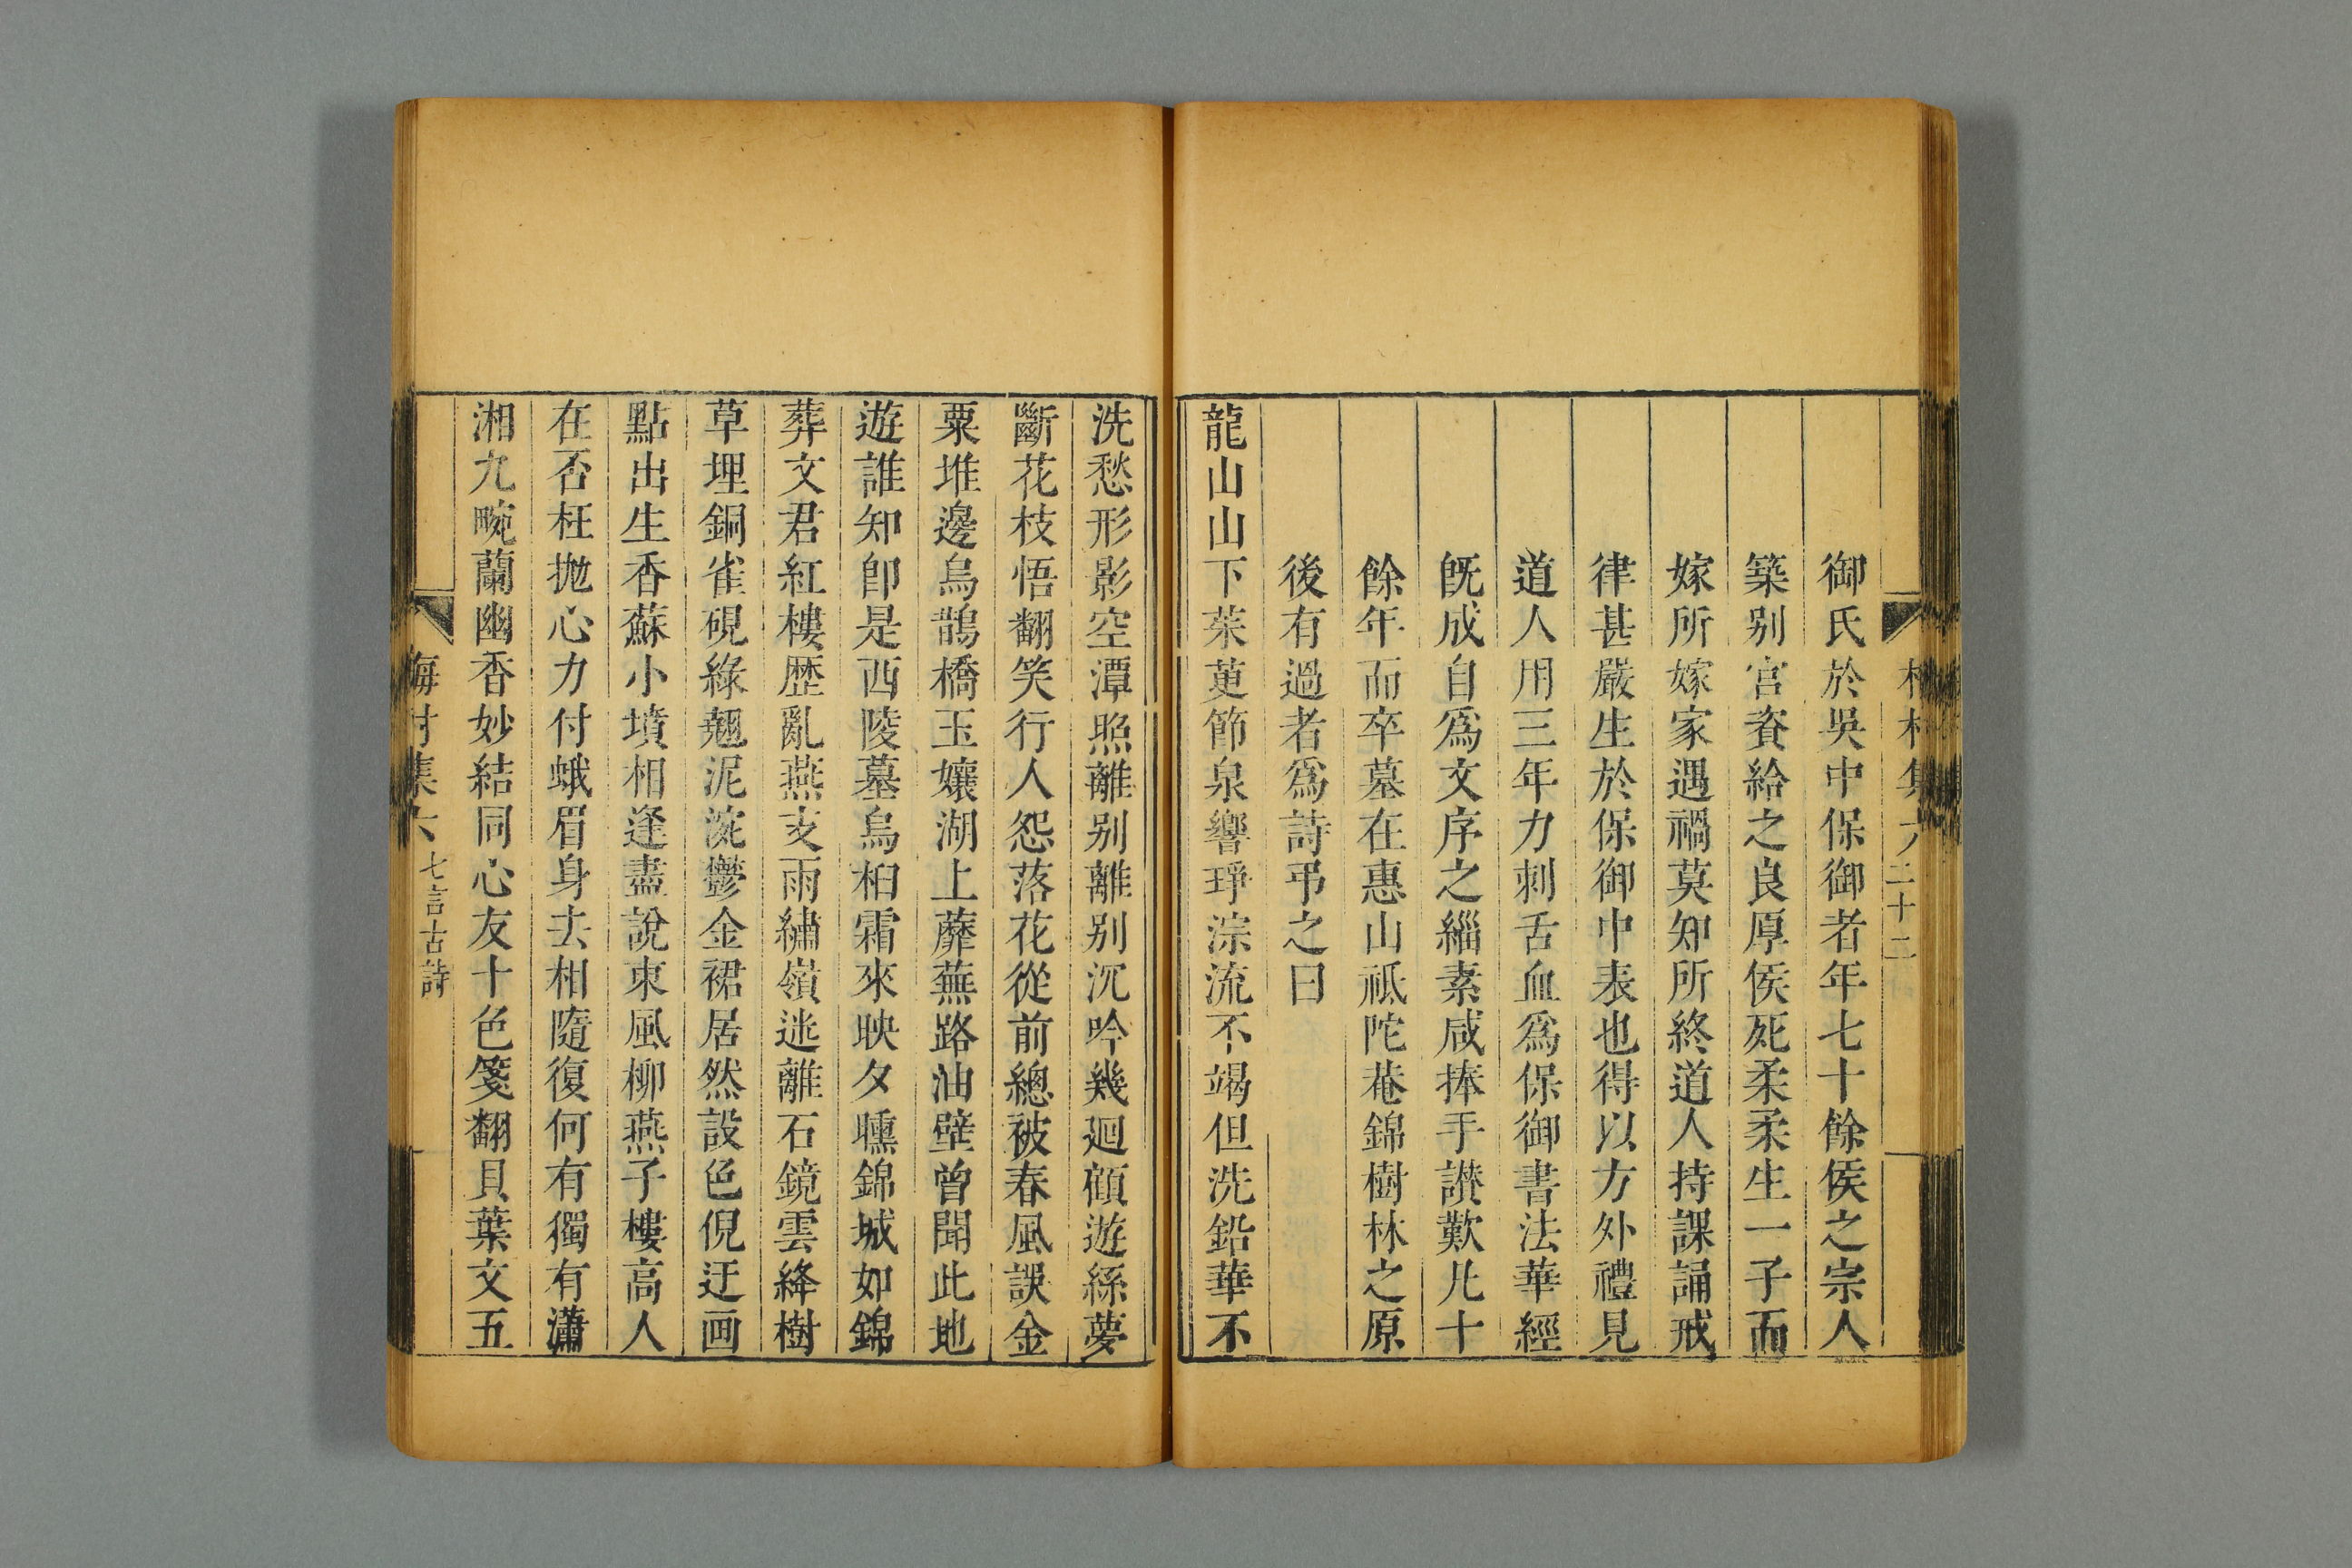 御氏於吳中保御者年七十餘侯之宗人
築别宮資給之良厚侯死柔柔生一子而
嫁所嫁家遇禍莫知所終道人持課誦戒
律甚嚴生於保御中表也得以方外禮見
道人用三年力刺舌血爲保御書法華經
旣成自爲文序之緇素咸捧手讃歎凡十
餘年而卒墓在惠山祗陀菴錦樹林之原
後有過者爲詩弔之曰
龍山山下茱萸節泉響琤淙流不竭但洗鉛華不
洗愁形影空潭照離别離别沉吟幾廻顧遊絲夢
斷花枝悟翻笑行人怨落花從前總被春風誤金
粟堆邊烏鵲橋玉孃湖上蘼蕪路油壁曾聞此地
遊誰知卽是西陵墓烏桕霜來映夕曛錦城如錦
葬文君紅樓歴亂燕支雨繡嶺迷離石鏡雲絳樹
草埋銅雀硯綠翹泥涴鬱金裙居然設色倪迂画
點出生香蘇小墳相逢盡說東風柳燕子樓高人
在否枉抛心力付蛾眉身去相隨復何有獨有瀟
湘九畹蘭幽香妙結同心友十色箋翻貝葉文五
梅村集六 七言古詩
二十二